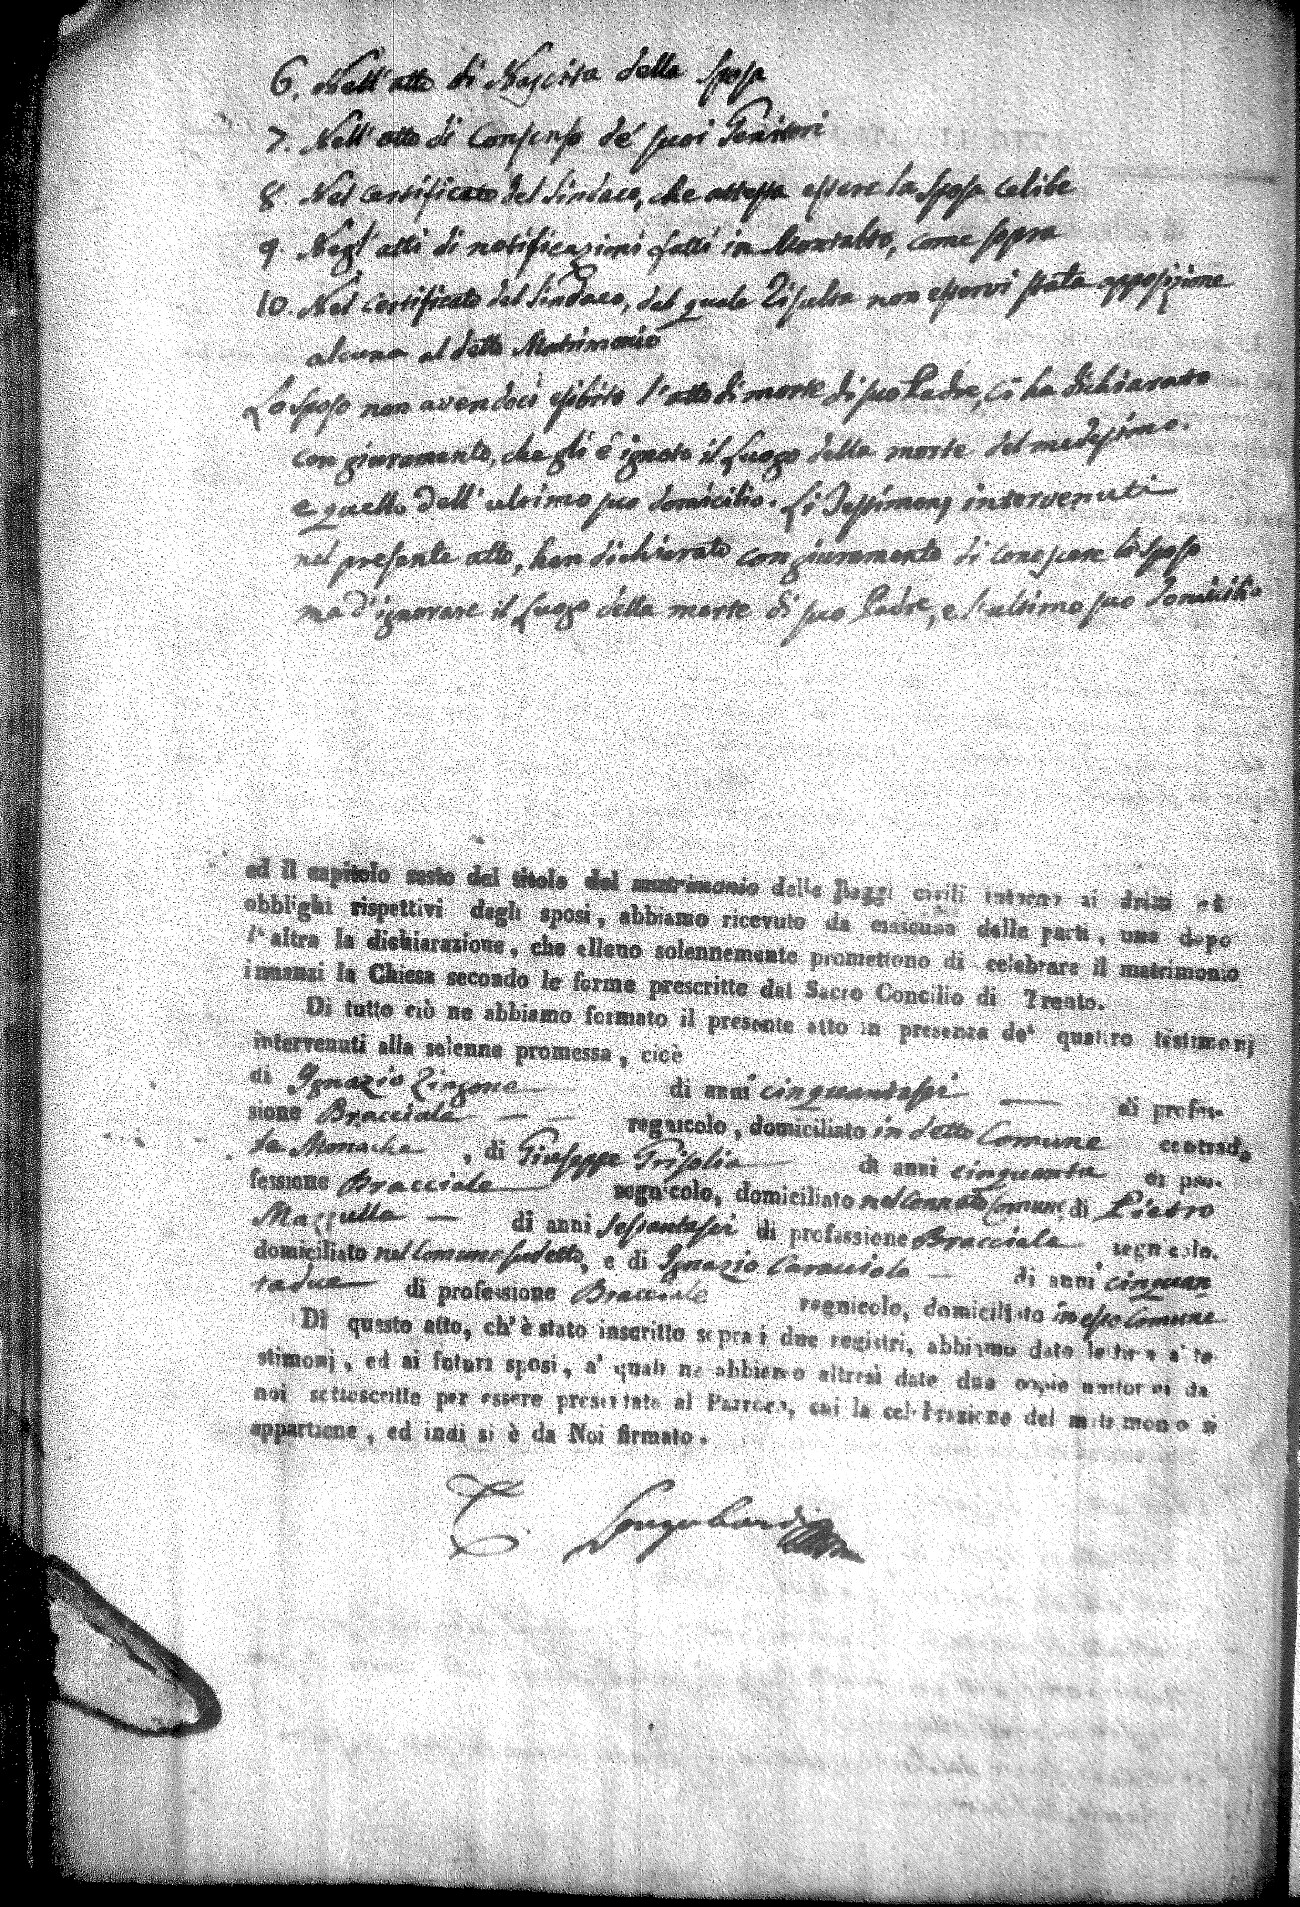 6. Nell'atto di Nascita della sposa
7. Nell'atto di Consenso de' suoi Genitori
8. Nel certificato del Sindaco, che attesta essere la sposa celibe
9. Negl'atti di notificazioni fatti in Montalto, come sopra
10. Nel certificato del Sindaco, del quale Risulta non esservi stata opposizione
alcuna al detto Matrimonio
Lo sposo non avendoci esibito l'atto di morte di suo Padre, ci ha dichiarato
con giuramento, che gli è ignoto il Luogo della morte del medesimo.
e quello dell'ultimo suo domicilio. Li Testimonj intervenuti
nel presente atto, han dichiarato con giuramento di conoscere lo sposo
ma d'ignorare il Luogo della morte di suo Padre, e l'ultimo suo domicilio
ed il capitolo sesto del titolo del matrimonio delle Leggi civili intorno ai dritti ed
obblighi rispettivi degli sposi, abbiamo ricevuto da ciascuna delle parti, una dopo
l'altra la dichiarazione, che elleno solennemente promettono di celebrare il matrimonio
innanzi la Chiesa secondo le forme prescritte dal Sacro Concilio di Trento.
Di tutto ciò ne abbiamo formato il presente atto in presenza de' quattro testimonj
intervenuti alla solenne promessa, cioè
di Ignazio Zingone di anni cinquantasei di profes-
sione Bracciale regnicolo, domiciliato in detto Comune contrada
le Monache, di Giuseppe Grisolia di anni cinquanta di pro-
fessione Bracciale regnicolo, domiciliato nel connato Comune di Pietro
Mazzulla di anni sessantasei di professione Bracciale regnicolo.
domiciliato nel Comune sudetto, e di Ignazio Caracciolo di anni cinquan
tadue di professione Bracciale regnicolo, domiciliato in esso Comune
Di questo atto, ch'è stato inscritto sopra i due registri, abbiamo dato lettura a' te-
stimonj, ed ai futuri sposi, a' quali ne abbiamo altresì date due copie uniformi da
noi sottoscritte per essere presentate al Parroco, cui la celebrazione del matrimonio si
appartiene, ed indi si è da Noi firmato.
C. Longobardi